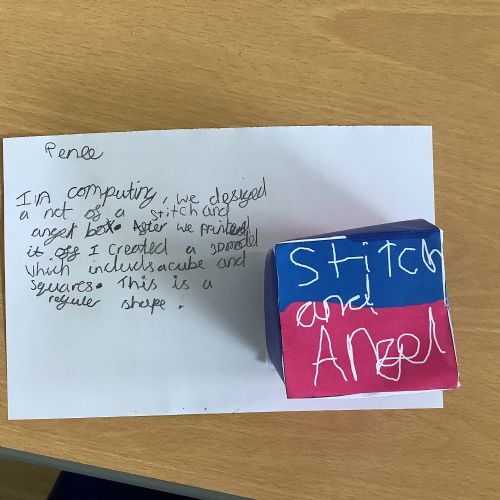 Renee
In computing, we desiged
a net of a stitch and
angel box. After we printed
it off I created a 3D model
which includs a cube and
squares. This is a
reguler shape.
Stitch
and
Angel